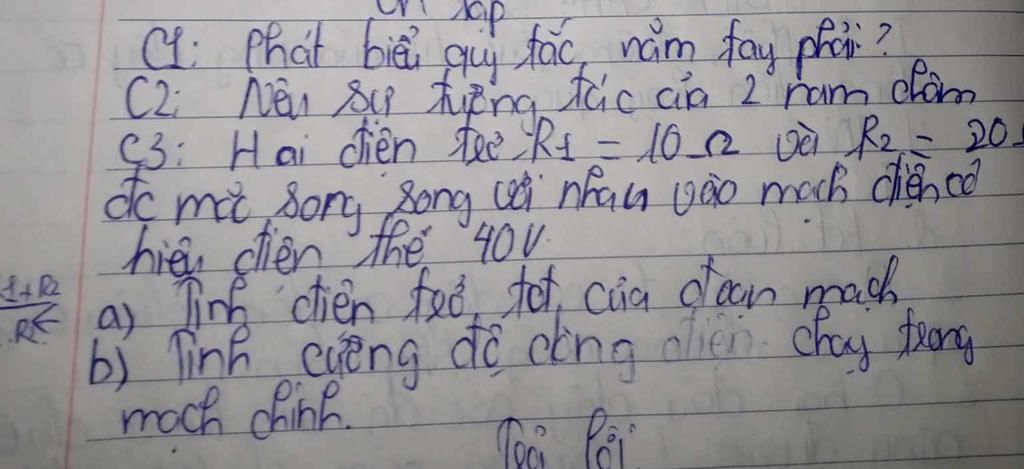 Ôn tập
C1: Phát biểu quy tắc nắm tay phải?
C2: Nêu sự tương tác của 2 nam châm
C3: Hai điện trở R1 = 10 Ω và R2 = 20
đc mắc song song với nhau vào mạch điện có
hiệu điện thế 40V.
a) Tính điện trở tđ của đoạn mạch
b) Tính cường độ dòng điện chạy trong
mạch chính.
Trả lời